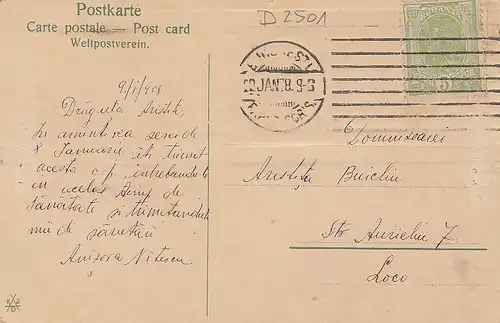 Postkarte
Carte postale — Post card
Weltpostverein.
D 2501
JAN 8. 9-3
ROMANIA
5
9/I/908
Drăguța Aristițo,
În amintirea serei de
8 Ianuarie îți trimit
această c.p. întrebându-te
în același timp de
sănătate și trimetându-ți
mii de sărutări
Anișora Nițescu
Domnișoarei
Aristița Buicliu
Str. Aurelia 7
Loco